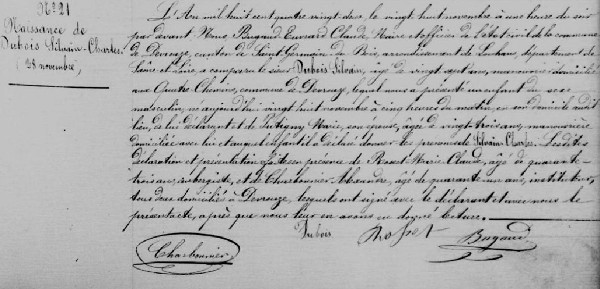 N° 21
Naissance de
Dubois Silvain-Charles
28 novembre,
L'An mil huit cent quatre vingt deux le vingt huit novembre à une heure du soir
par devant Nous Bugaud Edouard Claude, Maire et officier de l'état civil de la commune
de Devrouze, canton de Saint Germain du Bois, arrondissement de Louhans, département de
Saône et Loire, a comparu le sieur Dubois Silvain, âgé de vingt sept ans, manouvrier domicilié
aux Quatre Chemins, commune de Devrouze, lequel nous a présenté un enfant du sexe
masculin, né aujourd'hui vingt huit novembre à cinq heures du matin, en son domicile audit
lieu, de lui déclarant et de Marie, son épouse, âgée de vingt-trois ans, manouvrière
domiciliée avec lui et auquel enfant il a déclaré donner les prénoms de Silvain Charles. Lesdites
déclaration et présentation faites en présence de Marie Claude, âgé de quarante-
trois ans, aubergiste, et de Charbonnier Alexandre, âgé de quarante un ans, instituteur,
tous deux domiciliés à Devrouze, lesquels ont signé avec le déclarant et avec nous le
présent acte, après que nous leur en avons donné lecture.
Dubois Bugaud
Charbonnier